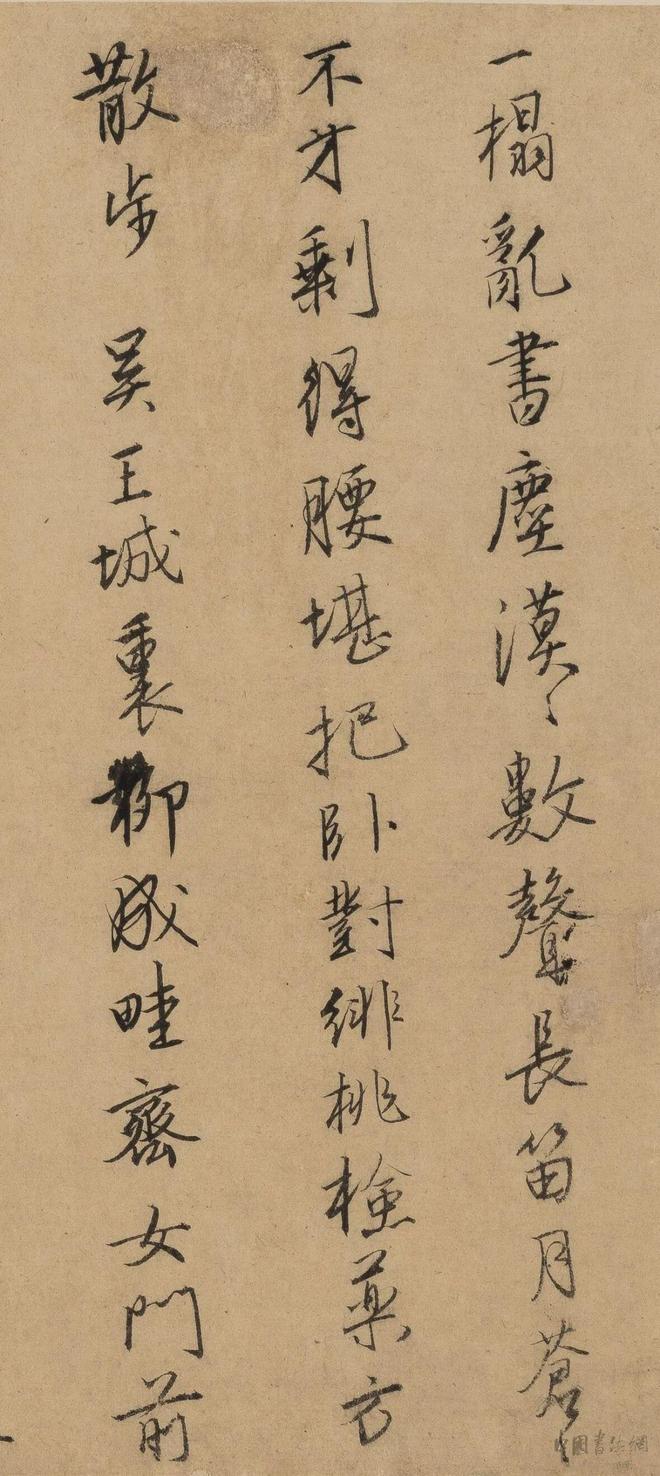 一榻亂書塵漠〻數聲長笛月蒼〻
不才剩得腰堪把卧對緋桃檢藥方
散步 吴王城裏柳成畦齊女門前
中國書法網